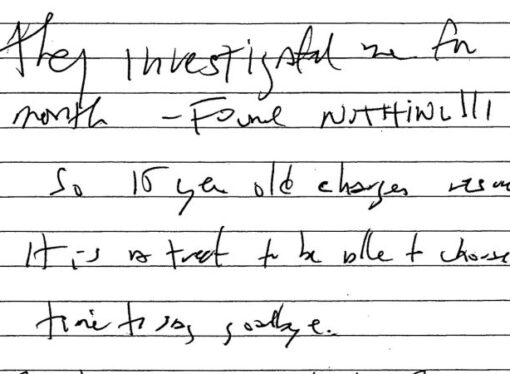 They investigated me for
month – Found NOTHING!!!
So 15 year old charges
It is a treat to be able to choose
time to say goodbye.